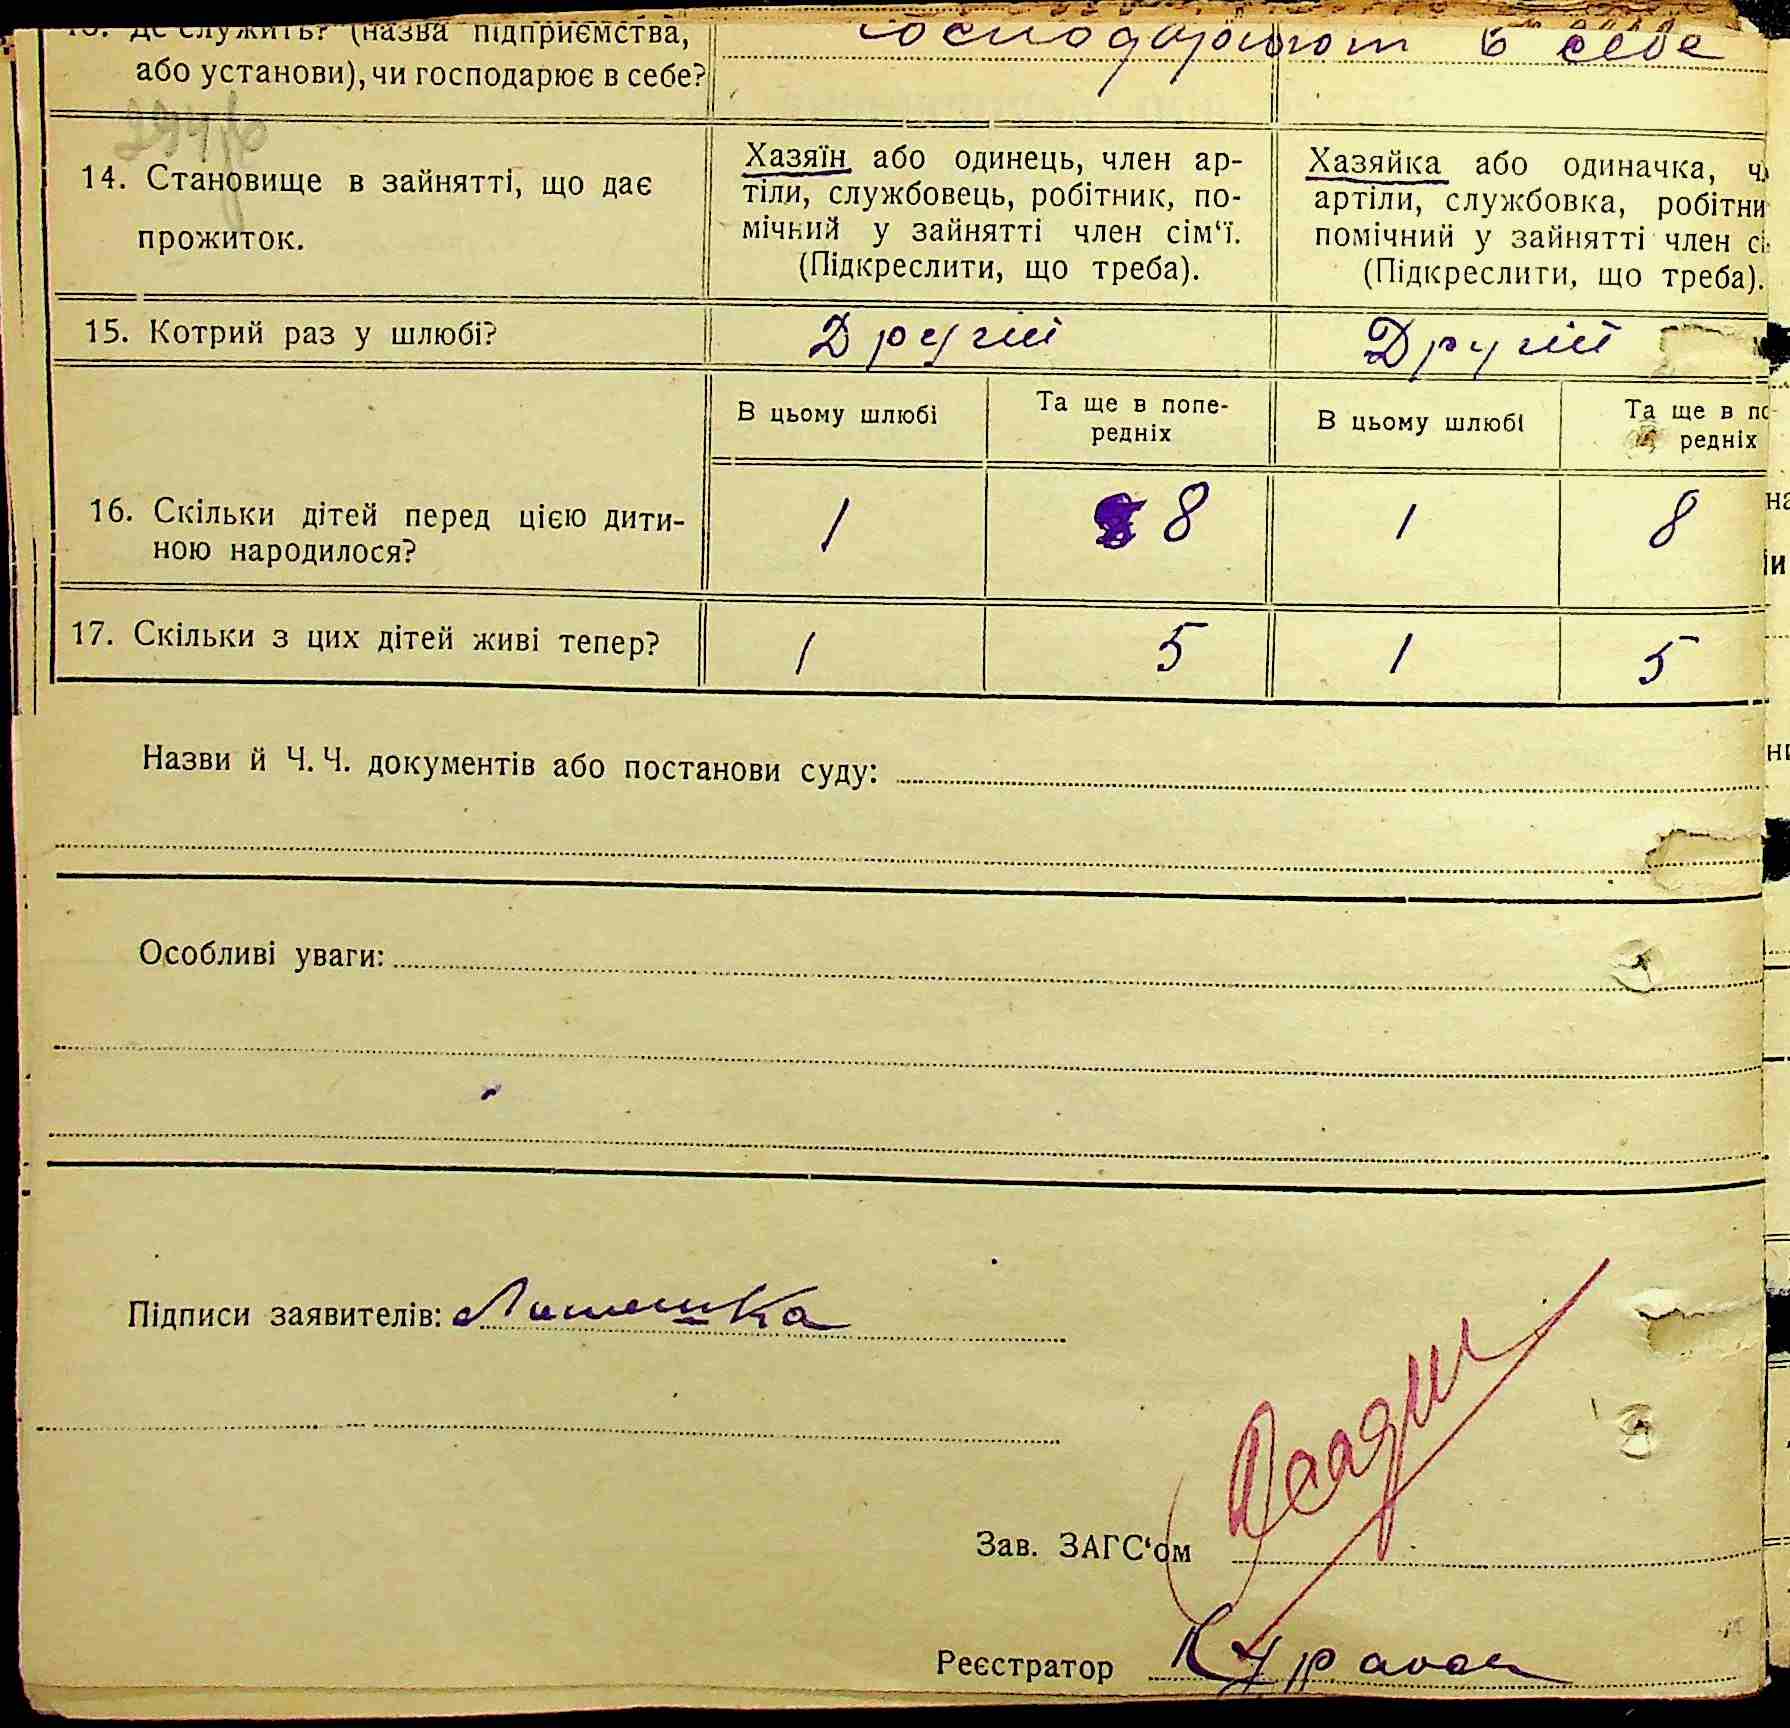 13. Де служить? (назва підприємства,
або установи), чи господарює в себе?
господарюют в себе
14. Становище в зайнятті, що дає
прожиток.
Хазяїн або одинець, член ар-
тіли, службовець, робітник, по-
мічний у зайнятті член сім‘ї.
(Підкреслити, що треба).
Хазяйка або одиначка,
артіли, службовка, робітни
помічний у зайнятті член сі
(Підкреслити, що треба).
15. Котрий раз у шлюбі?
Другій
Другій
В цьому шлюбі
Та ще в попе-
редніх
В цьому шлюбі
Та ще в по
редніх
16. Скільки дітей перед цією дити-
ною народилося?
1 8 1 8
17. Скільки з цих дітей живі тепер?
1 5 1 5
Назви й Ч. Ч. документів або постанови суду:
Особливі уваги:
Підписи заявителів:
Зав. ЗАГС‘ом
Реєстратор